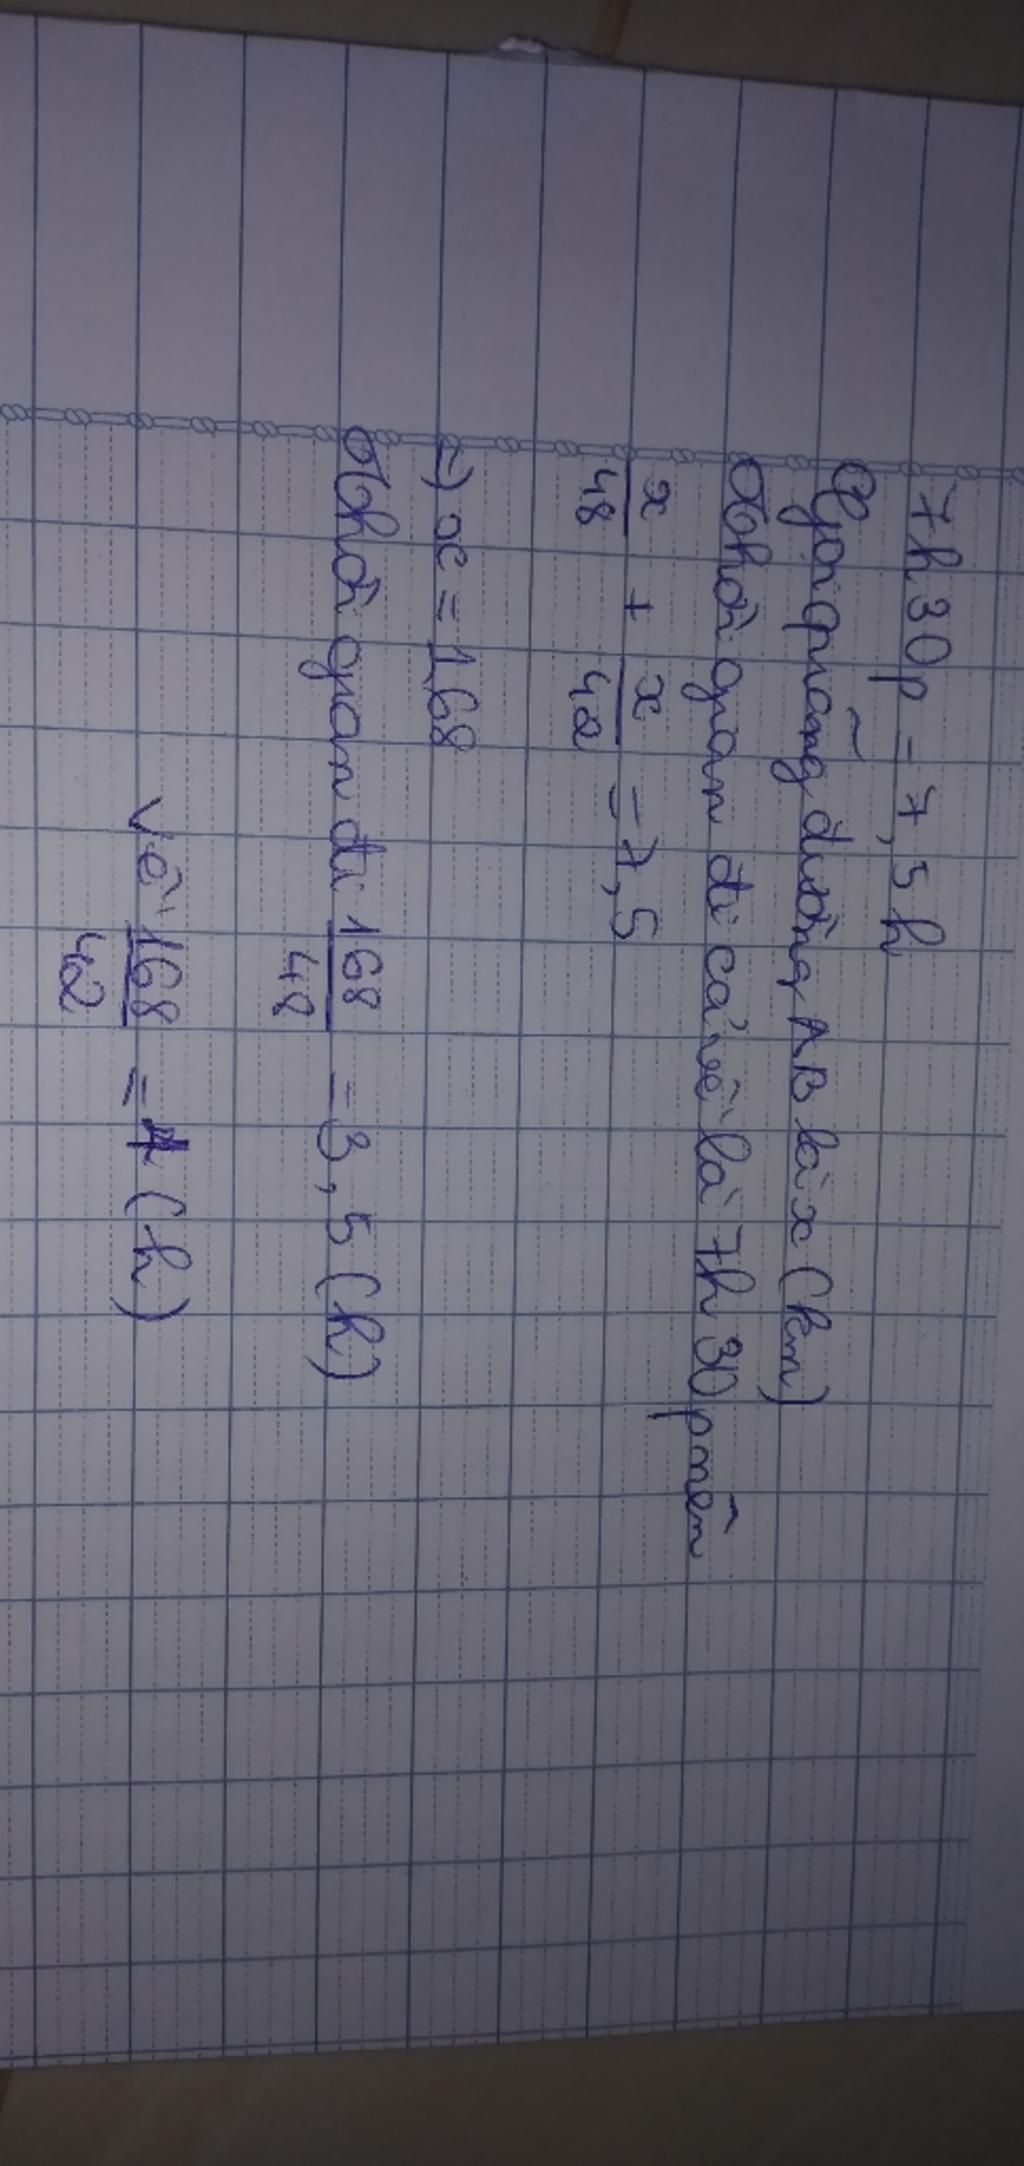 7h30p = 7,5h
Gọi quãng đường AB là x (km)
Thời gian đi cả về là 7h30p nên
x/48 + x/42 = 7,5
=) x = 168
Thời gian đi 168/48 = 3,5 (h)
Về 168/42 = 4 (h)